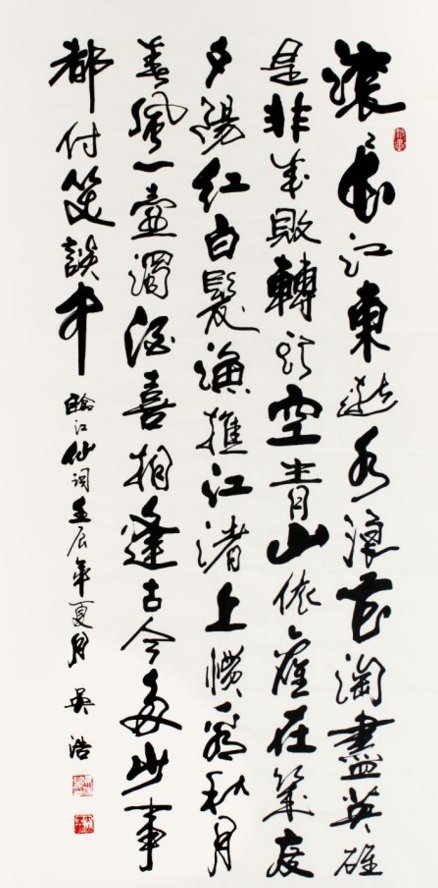 滾々長江東逝水浪花淘盡英雄
是非成敗轉頭空青山依舊在幾度
夕陽紅白髮漁樵江渚上慣看秋月
春風一壺濁酒喜相逢古今多少事
都付笑談中
臨江仙词壬辰年夏月
吳浩